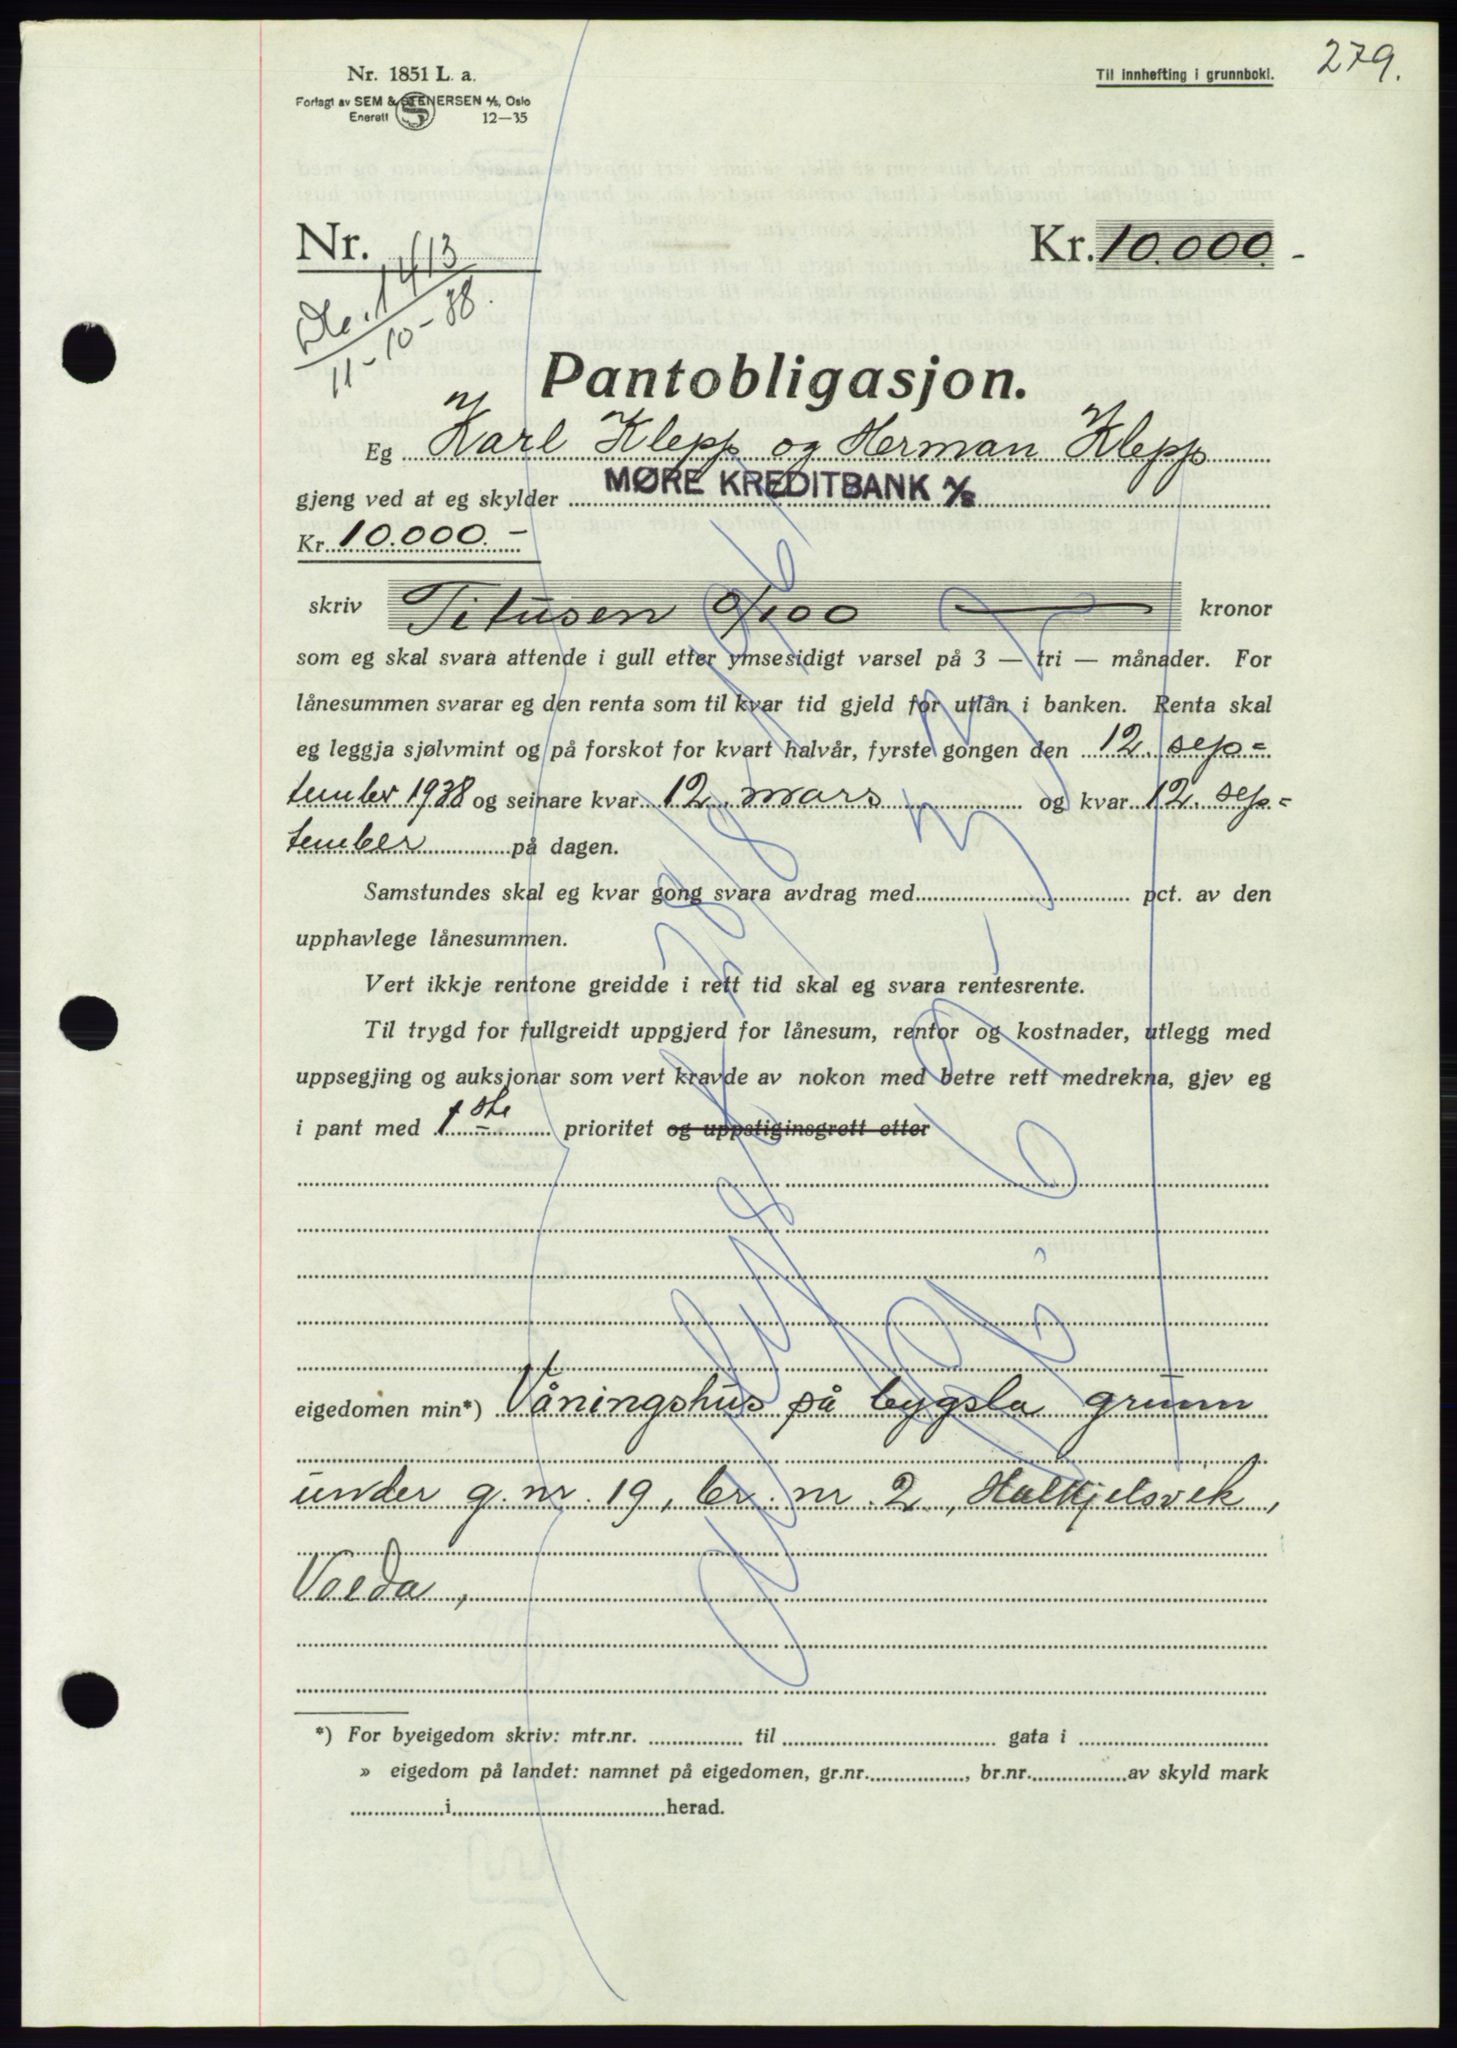 279.
Nr. 1851 L. a.
Til innhefting i grunnboki.
Forlagt av SEM & STENERSEN A/S, Oslo
Enerett 12—35
Nr. 1413
11-10-38.
Kr. 10.000.-
Pantobligasjon.
Eg Karl Klepp og Herman Klepp
gjeng ved at eg skylder MØRE KREDITBANK A/S
Kr. 10.000.-
skriv Titusen 0/100 — kronor
som eg skal svara attende i gull etter ymsesidigt varsel på 3 — tri — månader. For
lånesummen svarar eg den renta som til kvar tid gjeld for utlån i banken. Renta skal
eg leggja sjølvmint og på forskot for kvart halvår, fyrste gongen den 12. sep=
tember 1938 og seinare kvar 12. mars og kvar 12. sep=
tember på dagen.
Samstundes skal eg kvar gong svara avdrag med pct. av den
upphavlege lånesummen.
Vert ikkje rentone greidde i rett tid skal eg svara rentesrente.
Til trygd for fullgreidt uppgjerd for lånesum, rentor og kostnader, utlegg med
uppsegjing og auksjonar som vert kravde av nokon med betre rett medrekna, gjev eg
i pant med 1ste prioritet og uppstiginsgrett etter
eigedomen min*) Våningshus på bygsla grunn
under g. nr. 19, br. nr. 2, Halkjelsvik,
Volda,
*) For byeigedom skriv: mtr.nr. til gata i
» eigedom på landet: namnet på eigedomen, gr.nr. , br.nr. av skyld mark
i herad.